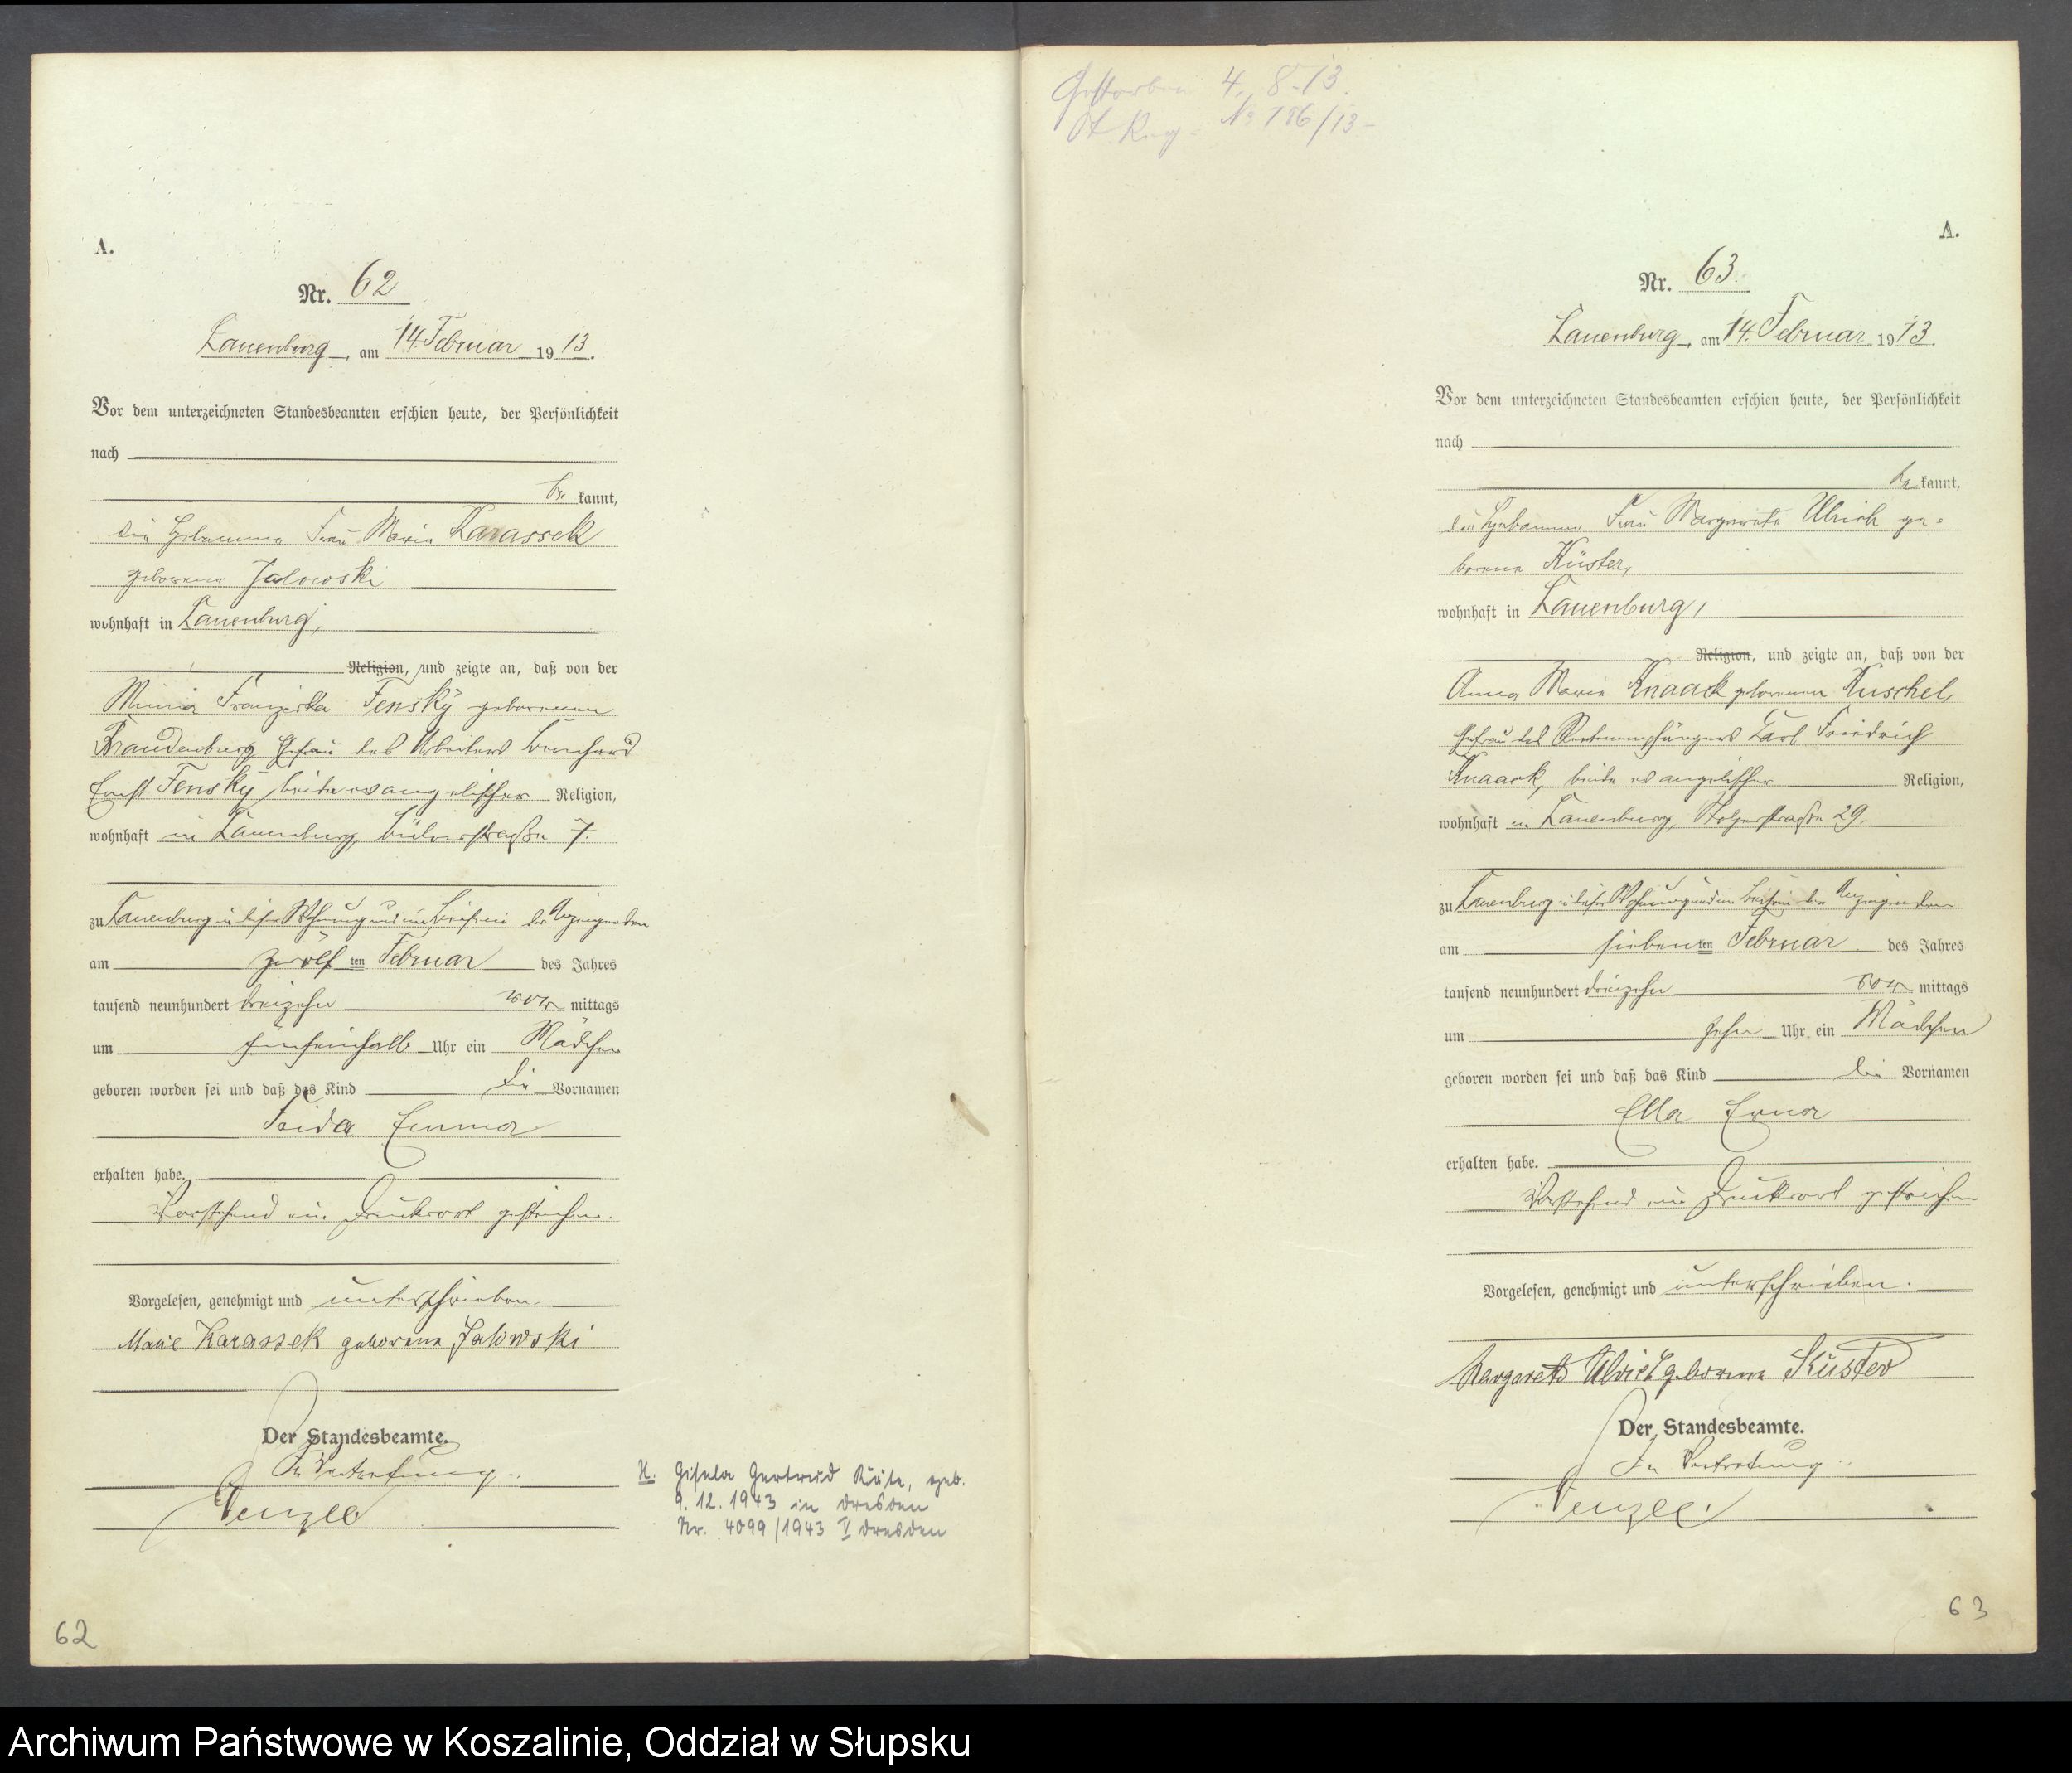 A.
Nr. 62
Lauenburg, am 14. Februar 1913.
Vor dem unterzeichneten Standesbeamten erschien heute, der Persönlichkeit
nach
be kannt,
die Hebamme Frau Maria Karassek
geborene Jalowski
wohnhaft in Lauenburg,
Religion, und zeigte an, daß von der
Franziska Fensky geborenen
Brandenburg Ehefrau des Arbeiters Bernhard
Ernst Fensky, beide evangelischer Religion,
wohnhaft in Lauenburg, Bülowstraße 7.
zu Lauenburg in dieser Wohnung und im Beisein der Anzeigenden
am zwölf ten Februar des Jahres
tausend neunhundert dreizehn vor mittags
um Uhr ein Mädchen
geboren worden sei und daß das Kind die Vornamen
Frida Emma
erhalten habe.
Vorstehend ein Druckwort gestrichen.
Vorgelesen, genehmigt und unterschrieben.
Marie Karassek geborene Jalowski
Der Standesbeamte.
In Vertretung.
Wenzel
H. Gisela Gertrud Käte, geb.
9.12.1943 in Dresden
Nr. 4099/1943 V Dresden
62
Gestorben 4. 8. 13.
St. Reg. No 186/13
A.
Nr. 63.
Lauenburg, am 14. Februar 1913.
Vor dem unterzeichneten Standesbeamten erschien heute, der Persönlichkeit
nach
be kannt,
die Hebamme Frau Margarete Ulrich ge-
borene Küster,
wohnhaft in Lauenburg,
Religion, und zeigte an, daß von der
Anna Marie Knaack geborenen Kuschel,
Ehefrau des Karl Friedrich
Knaack, beide evangelischer Religion,
wohnhaft in Lauenburg, Stolperstraße 29.
zu Lauenburg in dieser Wohnung und im Beisein der Anzeigenden
am sieben ten Februar des Jahres
tausend neunhundert dreizehn vor mittags
um zehn Uhr ein Mädchen
geboren worden sei und daß das Kind die Vornamen
Ella Erna
erhalten habe.
Vorstehend ein Druckwort gestrichen
Vorgelesen, genehmigt und unterschrieben.
Margarete Ulrich geborene Küster
Der Standesbeamte.
In Vertretung.
Wenzel
63
Archiwum Państwowe w Koszalinie, Oddział w Słupsku